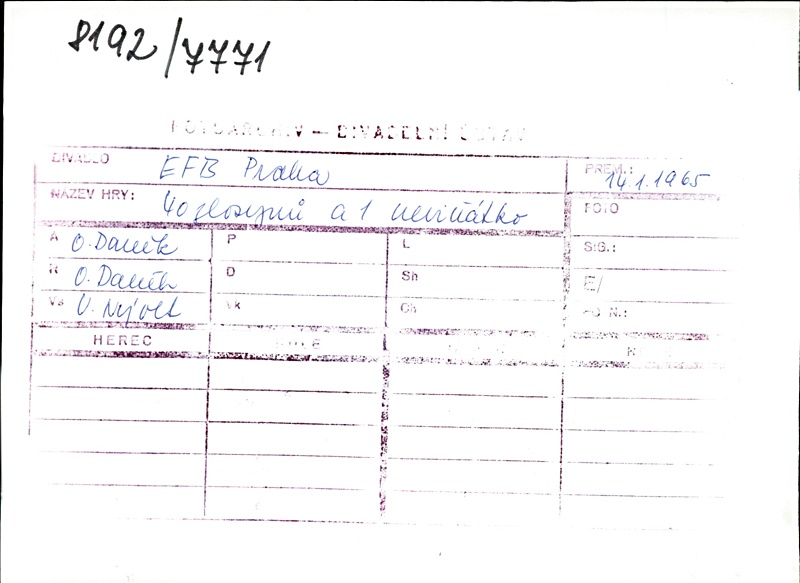 8192/7771
FOTOARCHIV – DIVADELNÍ ÚSTAV
DIVADLO EFB Praha PREM.: 14.1.1965
NÁZEV HRY: 40 zlosynů a 1 neviňátko FOTO
A O. Daněk P L SIG.:
R O. Daněk D Sh E/
Vs V. Nývlt Vk Ch PO N.:
HEREC ROLE N